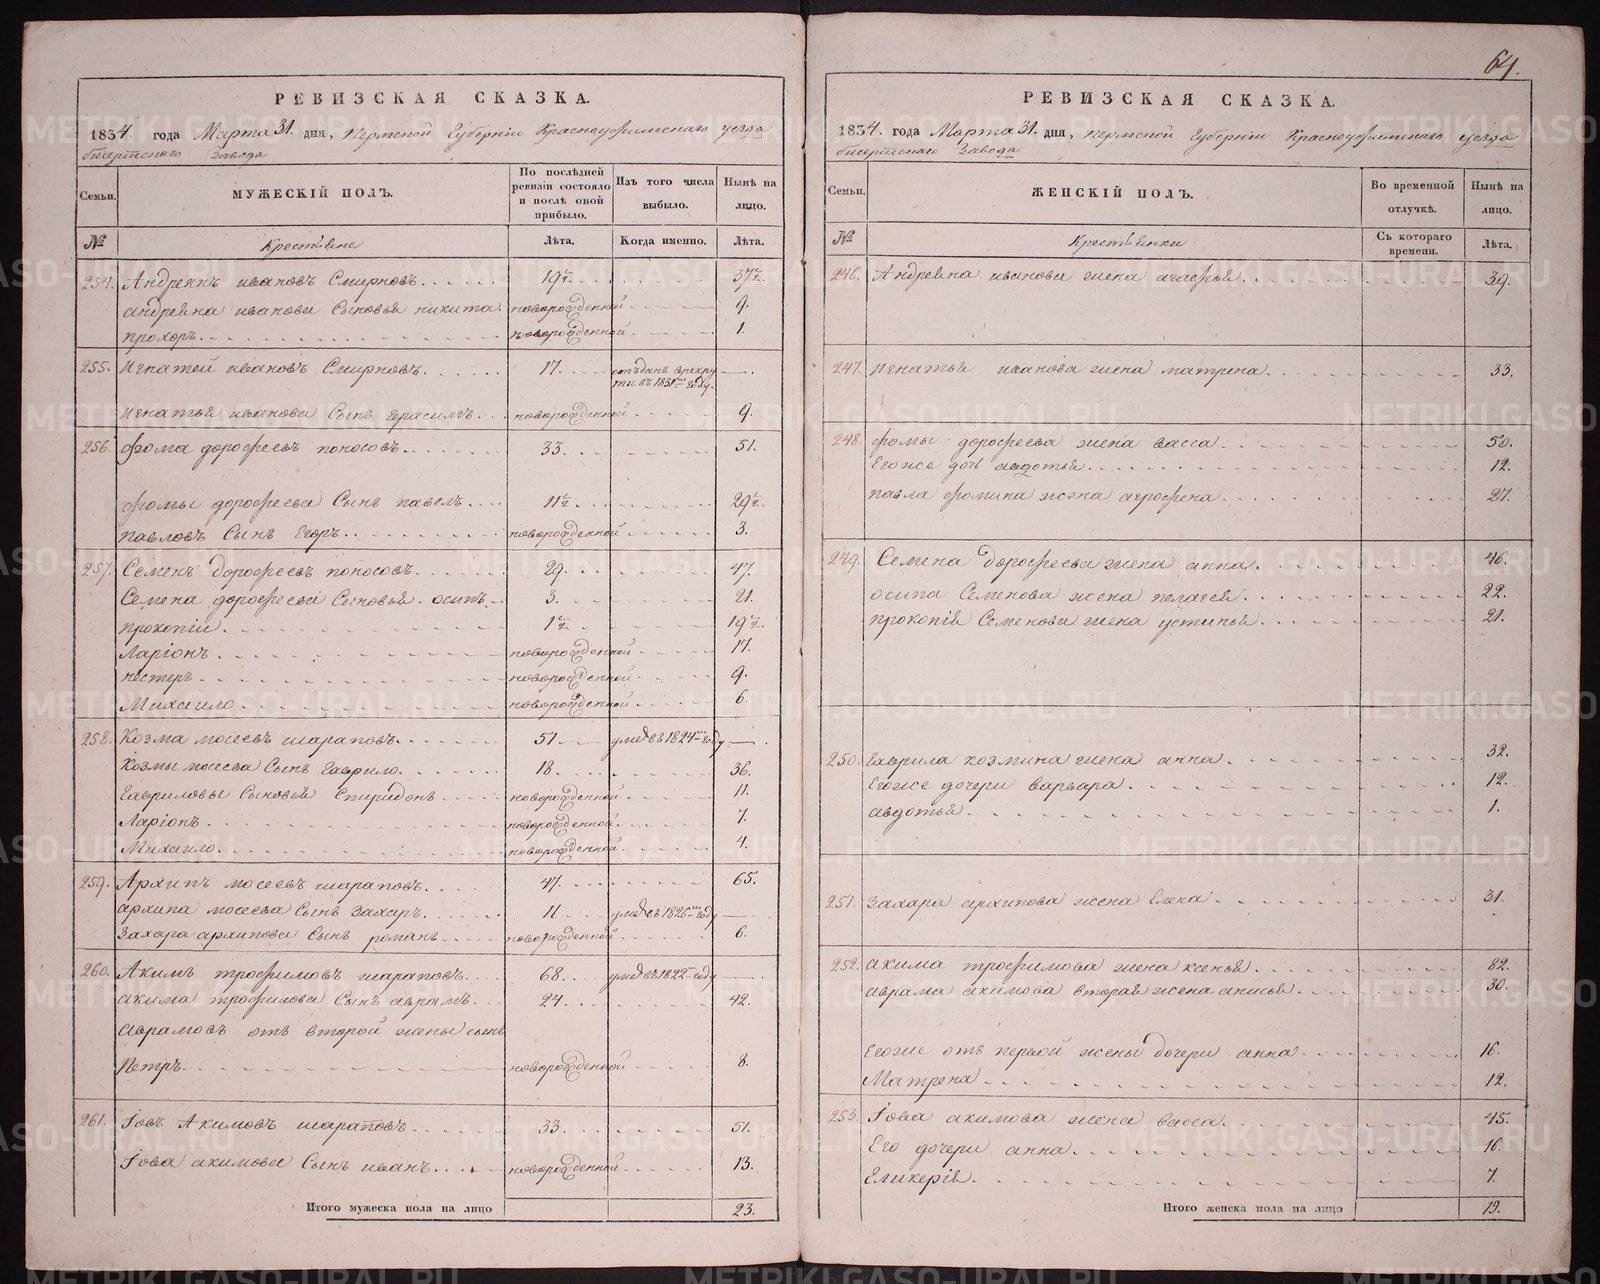 64.
РЕВИЗСКАЯ СКАЗКА.
1834. года Марта 31. дня, Пермской Губерніи Красноуфимскаго уезда
бисертскаго Завода
Семьи.
МУЖЕСКІЙ ПОЛЪ.
По послѣдней ревизіи состояло и послѣ оной прибыло.
Изъ того числа выбыло.
Нынѣ на лицо.
№
Крестьяне
Лѣта.
Когда именно.
Лѣта.
254. Андреянъ ивановъ Смирновъ 19 1/2 37 1/2
андреяна иванова Сыновья никита новорожденной 9.
прохоръ новорожденной 1.
255. Игнатей ивановъ Смирновъ 17. отъданъ врекру
ты въ 1831 году.
Игнатья иванова Сынъ герасимъ новорожденной 9.
256. фома дорофеевъ поносовъ 33. 51.
фомы дорофеева Сынъ павелъ 11 1/2 29 1/2
павловъ Сынъ Егоръ новорожденной 3.
257. Семенъ дорофеевъ поносовъ 29. 47.
Семена дорофеева Сыновья осипъ 3. 21.
прокопіи 1 1/2 19 1/2
Ларіонъ новорожденной 17.
нестеръ новорожденной 9.
Михаило новорожденной 6.
258. Козма мосеевъ шараповъ 51. умеръ въ 1824 году
Козмы мосеева Сынъ Гаврило 18. 36.
Гавриловы Сыновья Спиридонъ новорожденной 11.
Ларіонъ новорожденной 7.
Михаило новорожденной 4.
259. Архипъ мосеевъ шараповъ 47. 65.
архипа мосеева Сынъ Захаръ 11. умеръ въ 1826 году
Захара архипова Сынъ романъ новорожденной 6.
260. Акимъ трофимовъ шараповъ 68. умеръ въ 1822 году
акима трофимова Сынъ аврамъ 24. 42.
аврамовъ отъ второй жены сынъ
Петръ новорожденной 8.
261. Іовъ Акимовъ шараповъ 33. 51.
Іова акимова Сынъ иванъ новорожденной 13.
Итого мужеска пола на лицо 23.
РЕВИЗСКАЯ СКАЗКА.
1834. года Марта 31. дня, пермской Губерніи Красноуфимскаго уезда
бисертскаго Завода
Семьи.
ЖЕНСКІЙ ПОЛЪ.
Во временной отлучкѣ.
Нынѣ на лицо.
№
Крестьянки
Съ котораго времени.
Лѣта.
246. Андреяна иванова жена агафья 39.
247. Игнатья иванова жена матрена 33.
248. фомы дорофеева жена васса 50.
Егоже дочь авдотья 12.
павла фомина жена агрофена 27.
249. Семена дорофеева жена анна 46.
осипа Семенова жена пелагея 22.
прокопія Семенова жена устинья 21.
250. Гаврила козмина жена анна 32.
Егоже дочери варвара 12.
авдотья 1.
251. Захара архипова жена Елена 31.
252. акима трофимова жена ксенья 82.
аврама акимова вторая жена анисья 30.
Егоже отъ первой жены дочери анна 16.
Матрена 12.
253. Іова акимова жена васса 45.
Его дочери анна 16.
Гликерія 7.
Итого женска пола на лицо 19.
METRIKI.GASO-URAL.RU